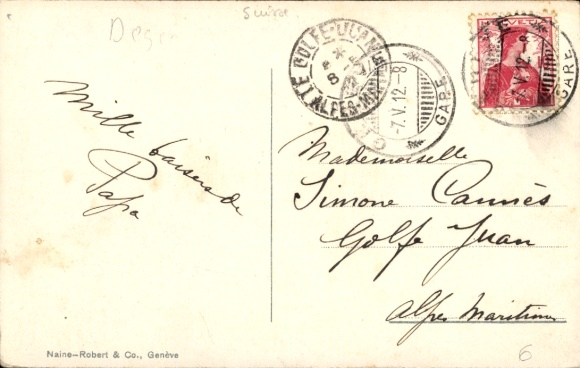 Suisse
LE GOLFE-JUAN
8
ALPES-MARITIMES
-7.V.12.-8
GARE
HELVETIA
V.12.-8
GARE
Mille baisers de
Papa
Mademoiselle
Simone Cannès
Golfe Juan
Alpes Maritimes
Naine-Robert & Co., Genève
6